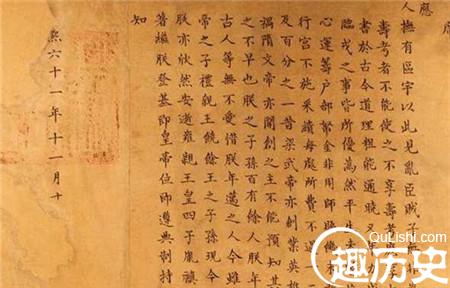 應
人撫有區宇以此見亂臣賊子無
壽考者不能使之不享壽考
書於古今道理粗能通曉又年力
臨戎之事皆所優為然平生未
心運籌戶部帑金非用師賑饑未
行宮不施采繢每處所費不
及百分之一昔梁武帝亦創業英
禍隋文帝亦開創之主不能預知其
之不早也朕之子孫百有餘人朕年
古人等無不愛惜朕年邁之人今雖
帝之子禮親王饒餘王之子孫現今
朕亦欣然安逝雍親王皇四子胤禛
著繼朕登基即皇帝位即遵典制持
知
熙六十一年十一月十
QuLishi.com
趣历史